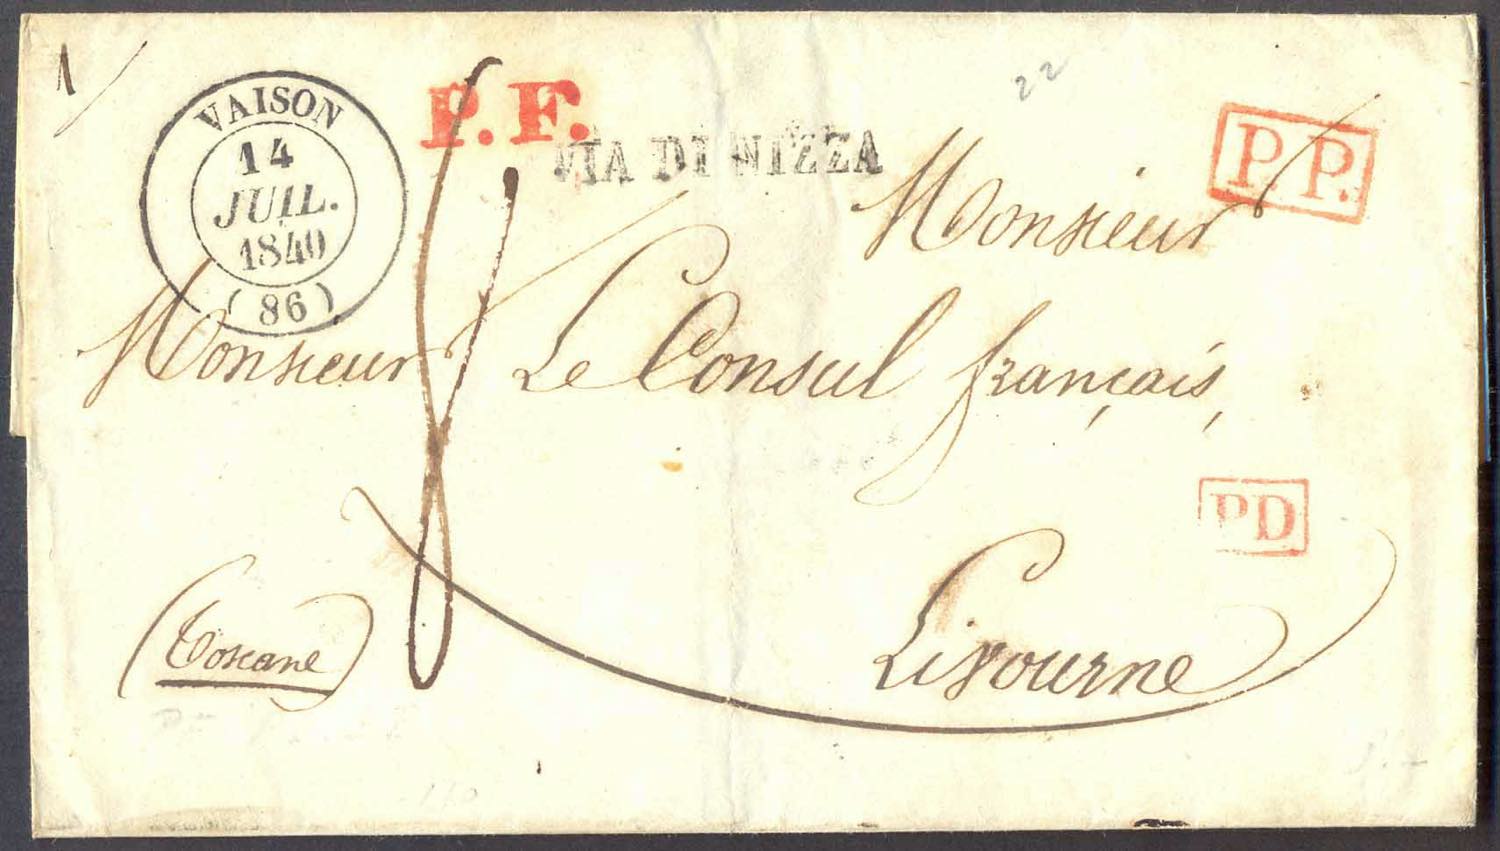 1
VAISON
14
JUIL.
1840
(86)
P.F.
VIA DI NIZZA
22
P.P.
Monsieur
Monsieur Le Consul français,
PD
Livourne
8
(Toscane)